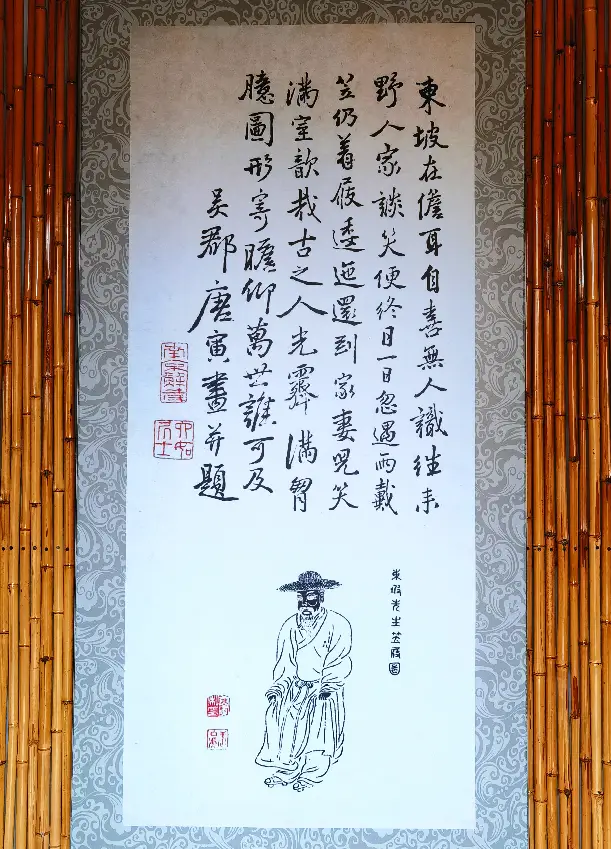 東坡在儋耳自喜無人識往来
野人家談笑便終日一日忽遇雨戴
笠仍着屐逶迤還到家妻兒笑
滿室歆哉古之人光霽滿胷
臆圖形寄瞻仰萬世誰可及
吳郡唐寅畫并題
六如居士
東坡先生笠屐圖